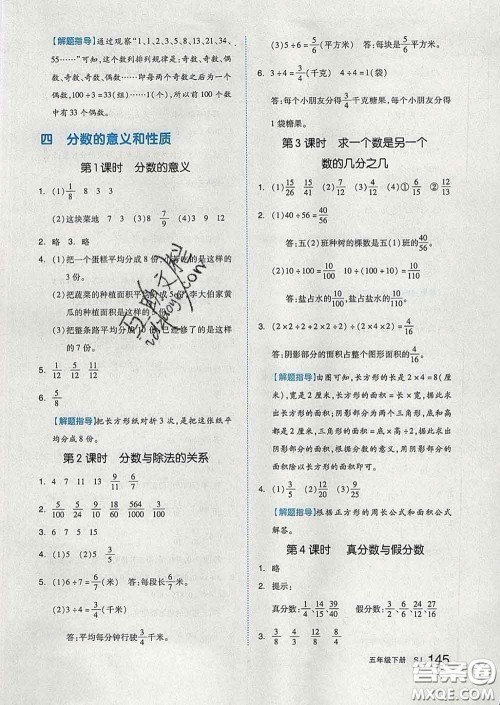 【解题指导】通过观察“1、1、2、3、5、8、13、21、34、
55……”可知,这个数列排列规律是:奇数、奇数、
偶数、奇数、奇数、偶数……即每两个奇数之后为一个
偶数,100÷3=33(组)……1(个),所以前100个数
中有33个偶数。
四 分数的意义和性质
第1课时 分数的意义
1. (1)1/8 8 3 3
(2)这块菜地 7 8 7/9 (3)4 3 9 12
2. 略 3. 略
4. (1)把一个蛋糕平均分成8份,
3份。
(2)把蔬菜的种植面积平均分成5份,李大伯家黄
瓜的种植面积是这样的4份。
(3)把整条路平均分成10份,已修了的是这样
的7份。
5. 1/12 5/12 5/12
6. 5/8
【解题指导】把长方形纸对折3次,是把这张纸平
均分成8份。
第2课时 分数与除法的关系
1. 7/10 4/15 12/7 9/11 6/7
2. 5/100 9/24 18/1000 564/1000 3/100
4. (1)5 (2)5 13/15
5. (1)6÷7=6/7(米) 答:每段长6/7米。
(2)3÷4=3/4(千米)
答:平均每分钟行驶3/4千米。
(3)5÷6=5/6(平方米) 答:每份是5/6平方米。
6. 3÷4=3/4(千克) 4÷4=1(袋)
答:每个小朋友分得3/4千克,每个小朋友分得
1袋糖果。
第3课时 求一个数是另一个
数的几分之几
1. (1)15/26 (2)15/41 (3)20/41 (4)①6/15 ②6/15
2. (1)40÷56=40/56
答:五(2)班种树的棵数是五(1)班的40/56。
(2)10÷100=10/100 10÷(10+100)=10/110
答:盐占水的10/100,盐占盐水的10/110。
3. (2×2÷2+2×2÷2)÷(2×4+2×2)=4/12
答:阴影部分的面积占整个图形面积的4/12。
【解题指导】由图可知,长方形的长是2×4=8(厘
米),宽是2厘米,根据长方形的面积=长×宽,可以
求出长方形的面积;阴影部分两个三角形,底和高
都是2厘米,三角形的面积=底×高÷2,可以求出
两个三角形的面积,即阴影部分的面积,用阴影部分
面积除以长方形的面积即可。
4. (1)3/5 (2)12/20 (3)9/25
【解题指导】根据正方形的周长公式和面积公式
解答。
第4课时 真分数与假分数
1. 略
2. 提示:
3. 3/3 4/4 6/6 9/9 13/13
五年级下册 SJ 145
答案圈
MXQE.COM